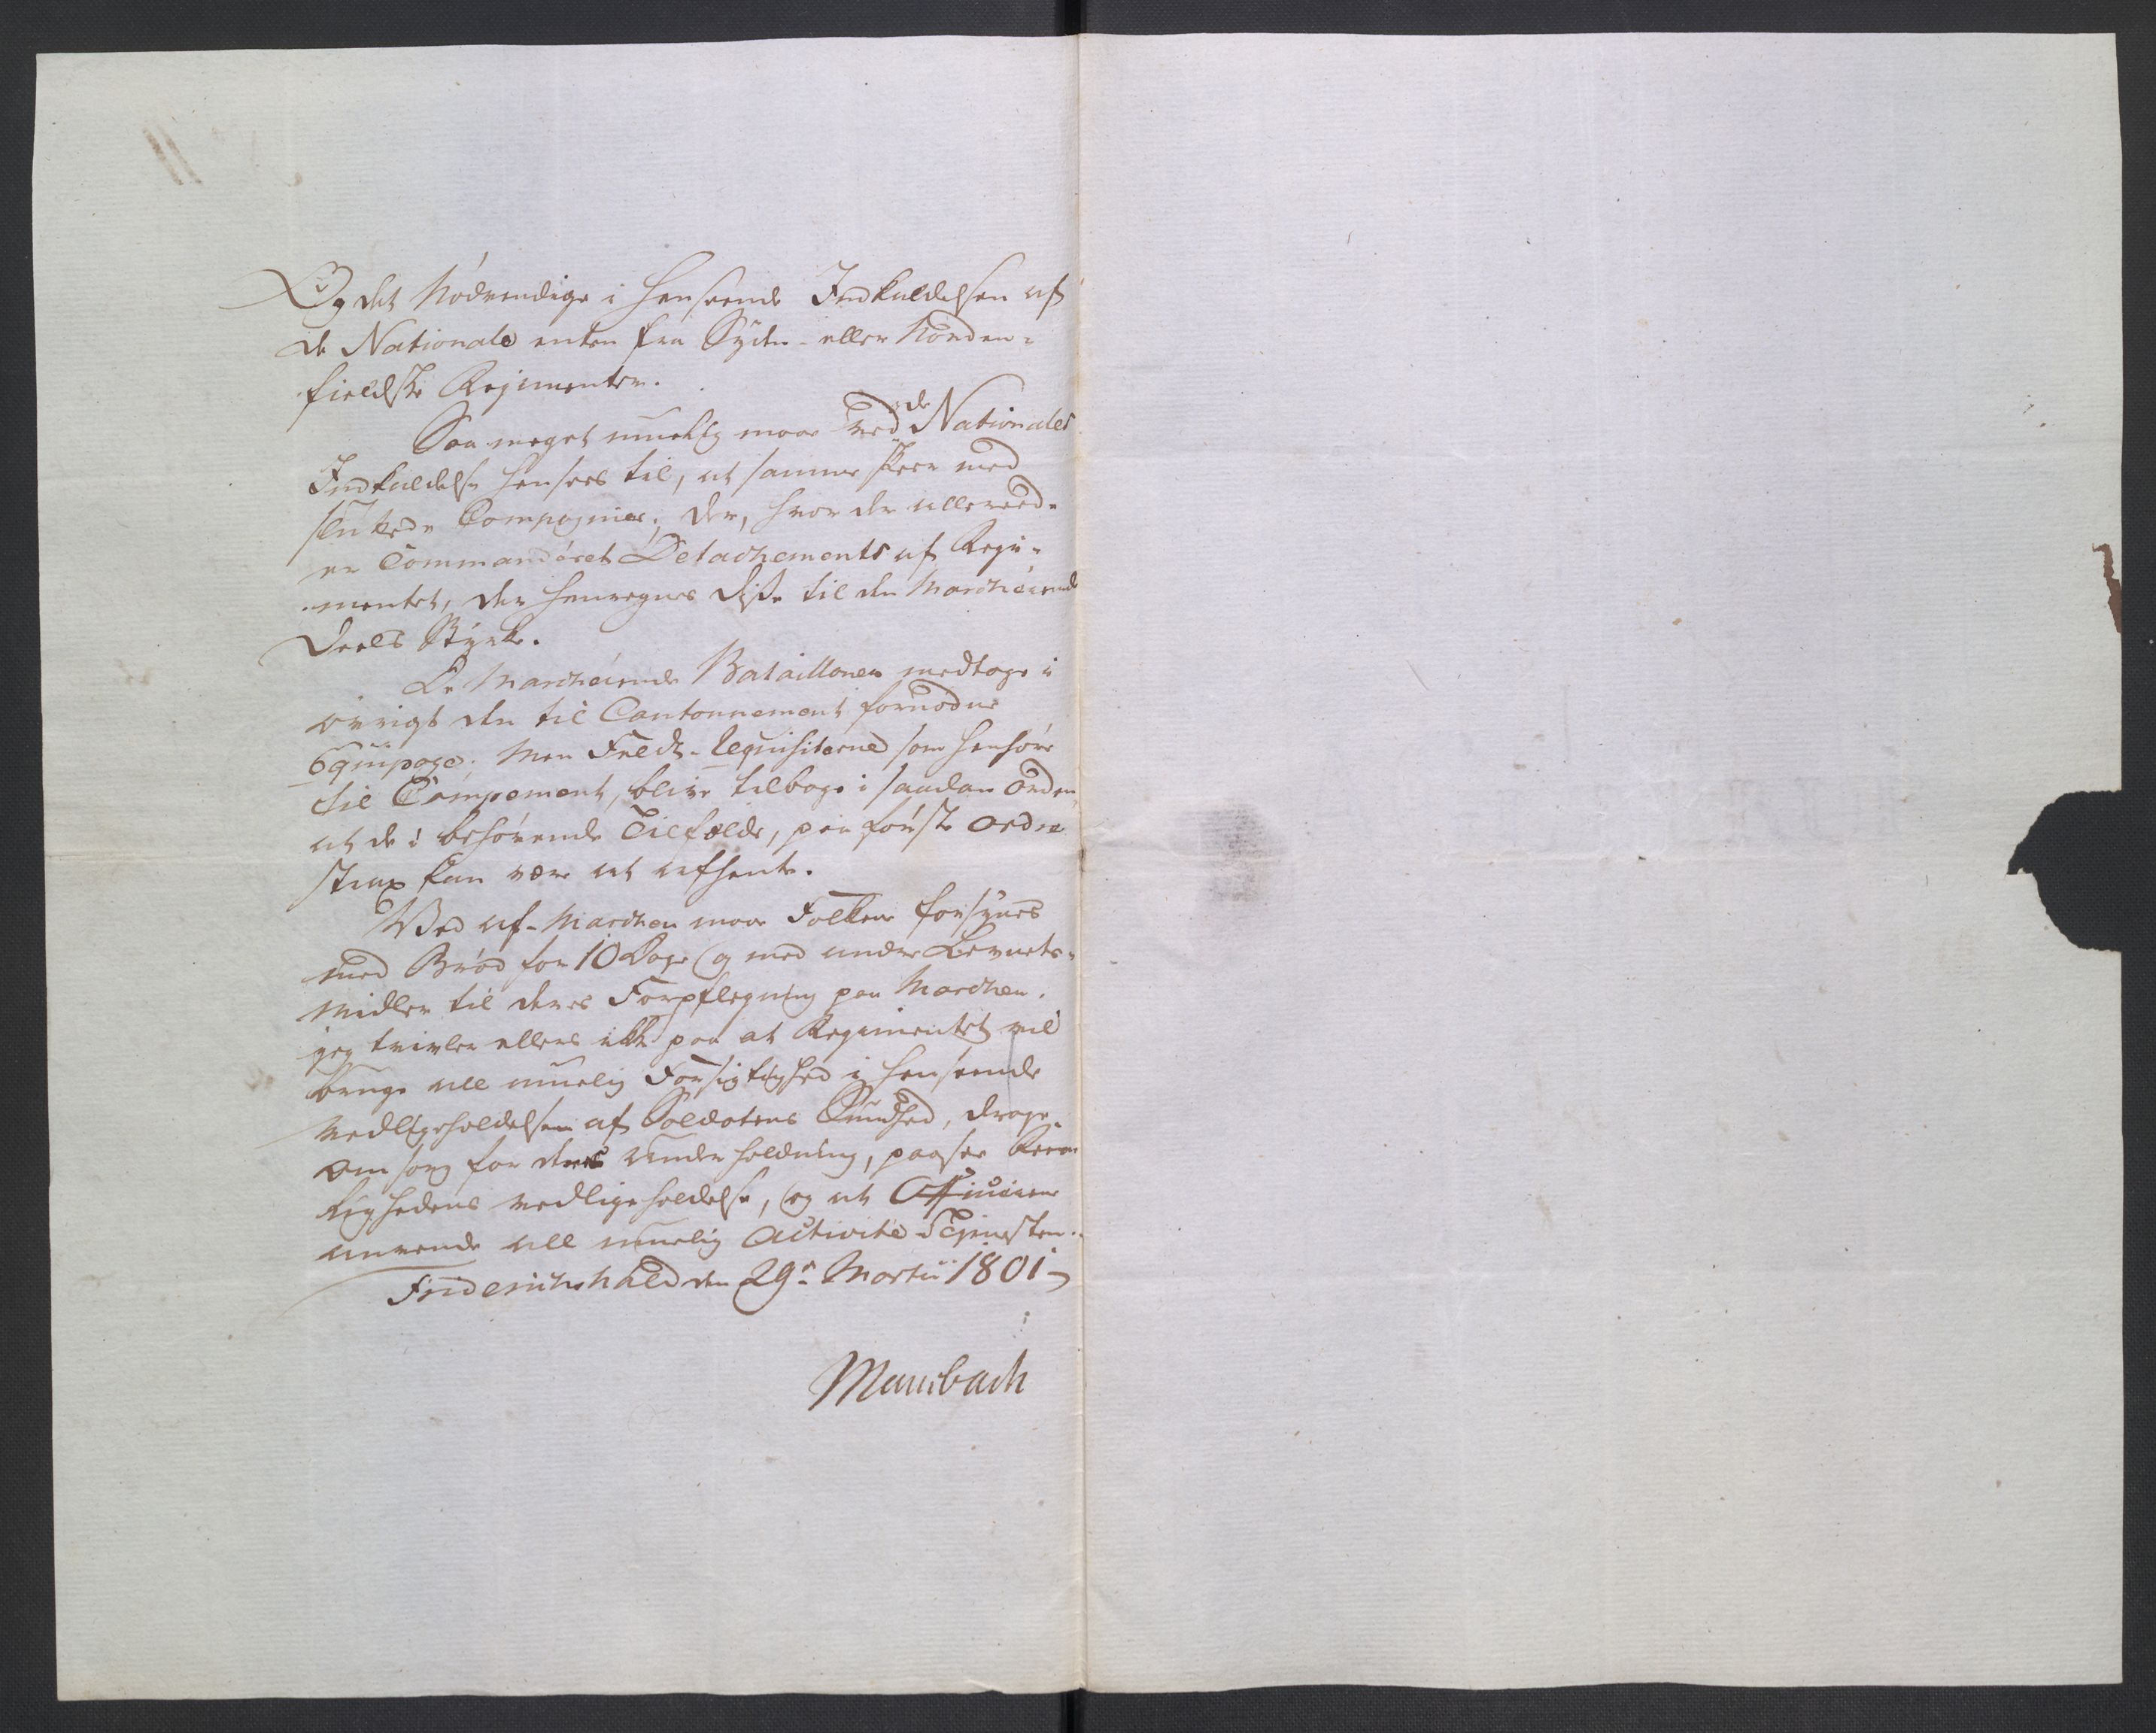 Og det Nödvendige i henseende Indkaldelsen af
de Nationale enten fra Syden- eller Norden-
fieldske Regimenter.
Saa meget mueligt maae ved de Nationales
Indkaldelse hensees til, at samme skeer med
slutkede Compagnier; der, hvor der allerede
er Commanderet Detachements af Regi-
mentet, der henregnes disse til den Marcherende
Deels Styrke.
De Marcherende Batailloner medtage i
övrigt den til Cantonnement fornödne
Equipage. Men Feldt-Requisiterne som henhöre
til Campement, blive tilbage i saadan Orden,
at de i behövende Tilfælde, paa förste Ordre
strax kan være at afhente.
Ved af-Marchen maae Folkene forsynes
med Bröd for 10 Dage og med andre Levnets-
Midler til deres Forpflegning paa Marchen.
jeg tvivler ellers ikke paa at Regimentet vil
bruge all muelig Forsigtighed i henseende
Vedligeholdelsen af Soldatens Sundhed, drage
Omsorg for deres Underholdning, paasee Reen-
lighedens vedligeholdelse, og at Officiererne
anvende all muelig Activité i Tjenesten.
Friderichshald den 29de Martii 1801
Mansbach